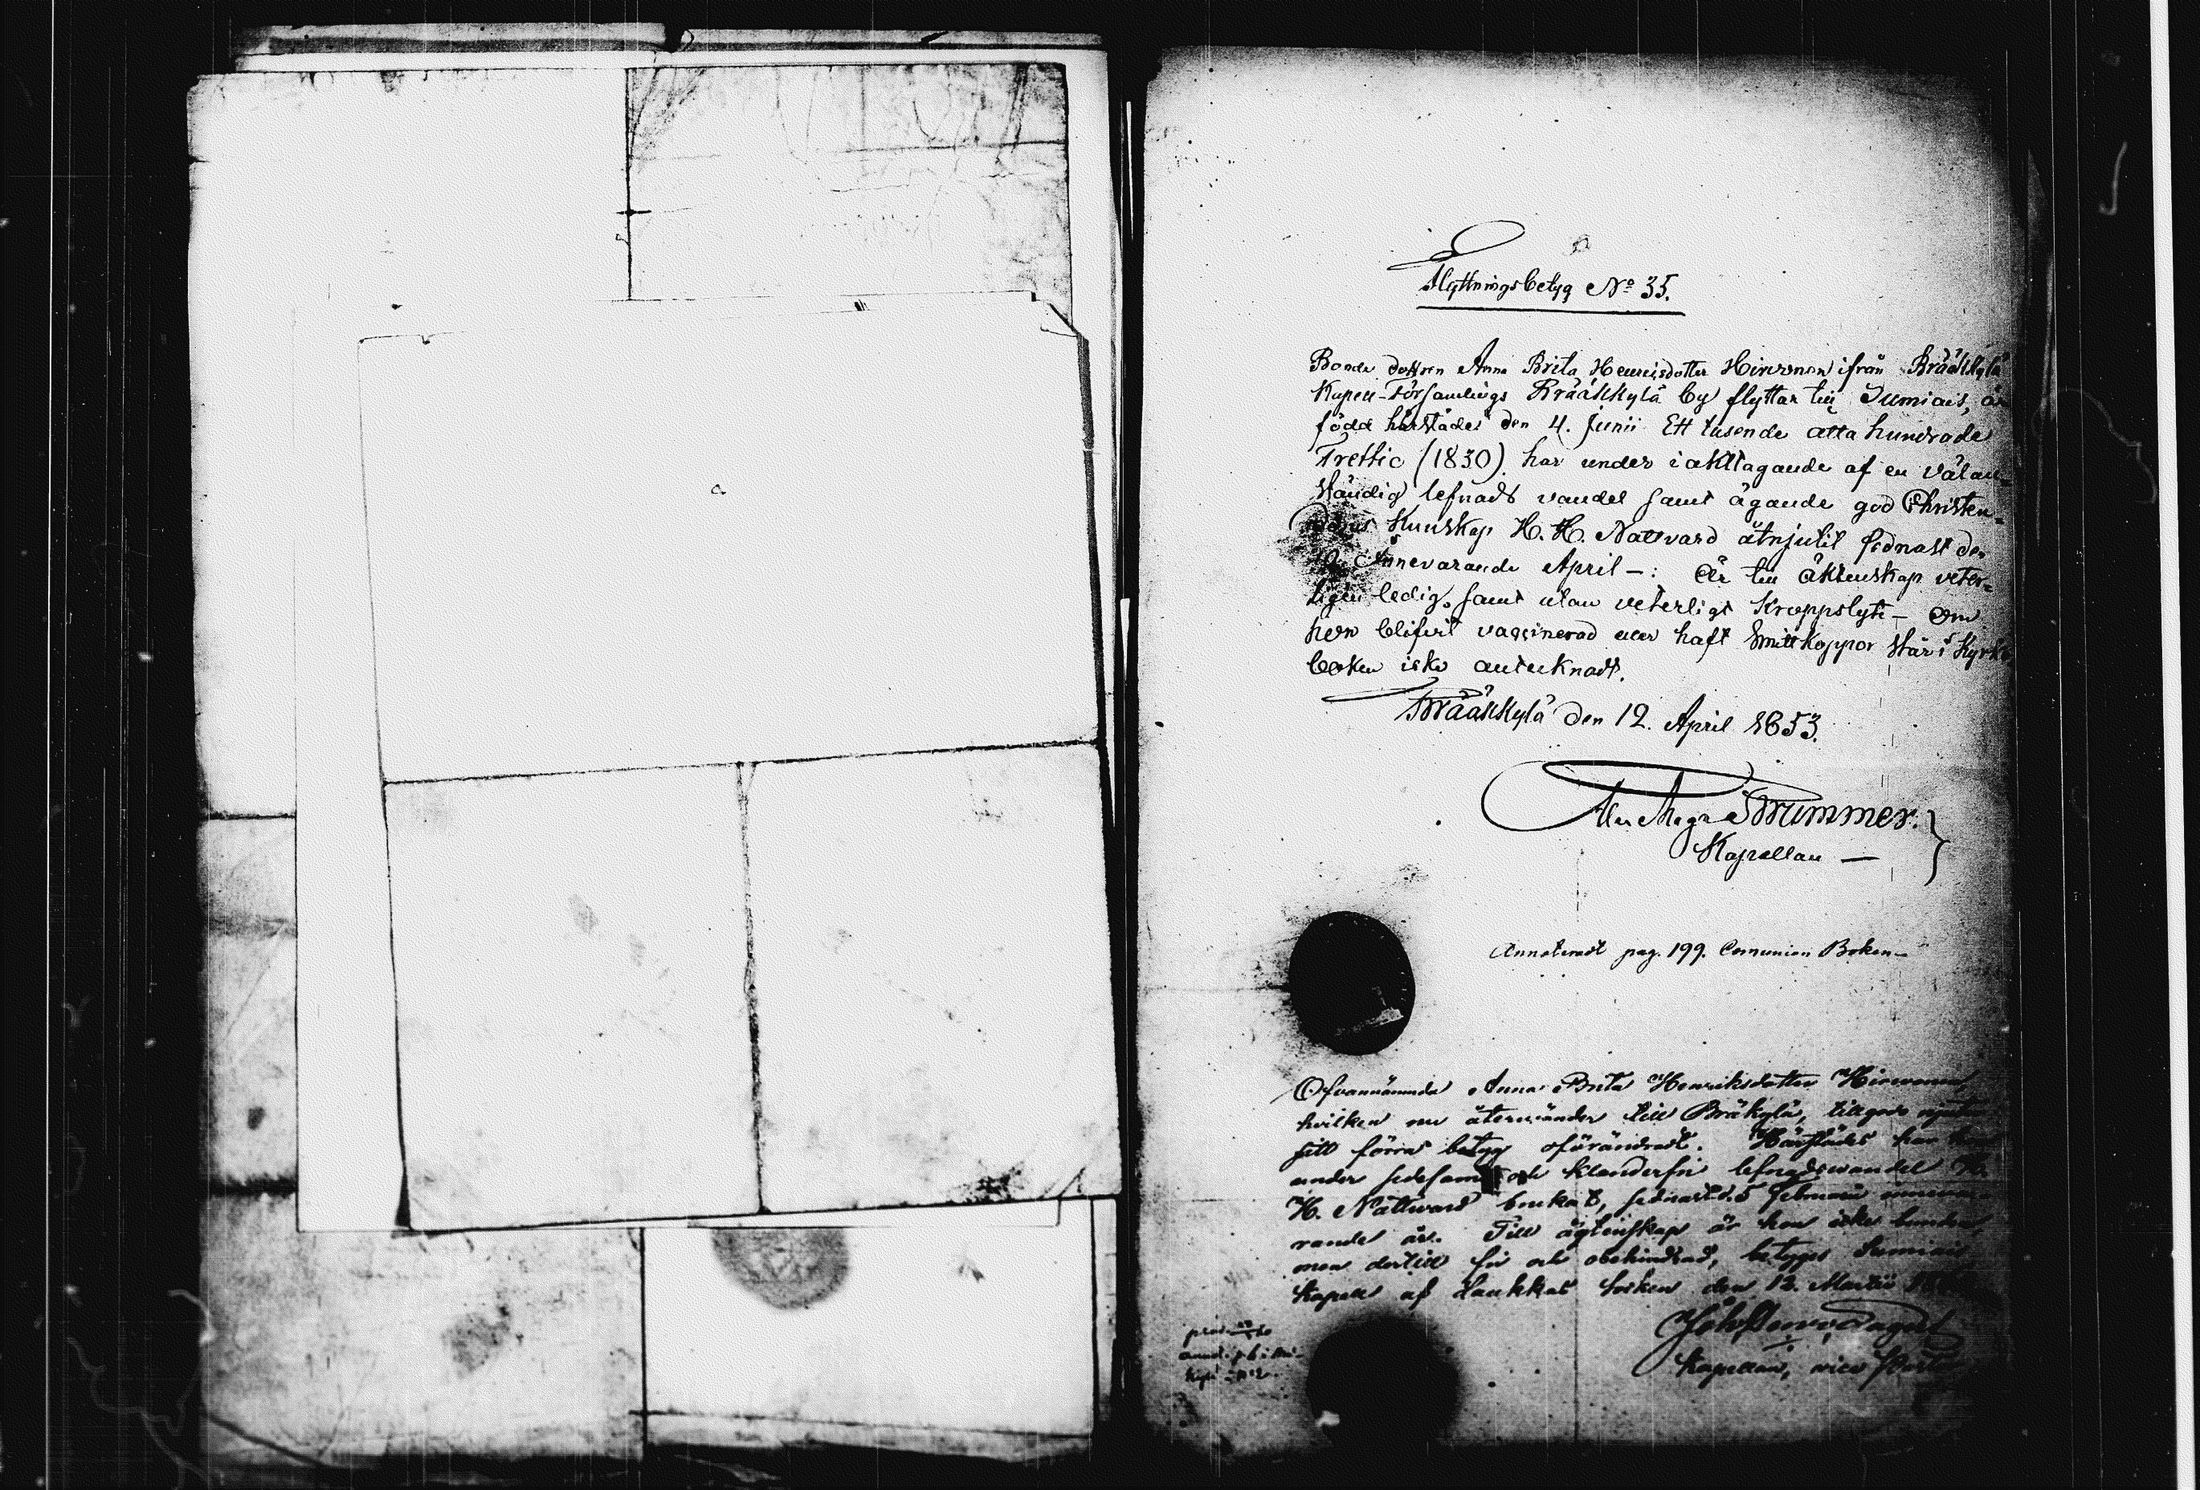 Flyttningsbetyg No 35.
Bonde dottren Anna Brita Henricsdotter Hirvonen ifrån Brääkkylä
Kapell-Församlings Brääkkylä by flyttar till Sumiais, är
född härstädes den 4. Junii Ett tusende åtta hundrade
Trettio (1830). har under iakttagande af en välan-
ständig lefnads vandel samt ägande god Christen-
doms Kunskap H. H. Nattvard åtnjutit sednast den
innevarande April -: Är till äktenskap veter-
ligen ledig, samt utan veterligt Kroppslyte - Om
hon blifvit vaccinerad eller haft Smittkoppor står i Kyrko
boken icke antecknadt.
Brääkkylä den 12. April 1853.
Brummer.
Kapellan —
Annoteradt pag. 199. Comunion Boken -
Ofvannämnda Anna Brita Henriksdotter Hirvonen,
hvilken nu återvänder till Bräkylä, tillgodo njuter
sitt förra betyg oförändradt. Härstädes har hon
under sedesam och klanderfri lefnadswandel H.
H. Nattward brukat, sednast d. 5 Februarii innewa-
rande år. Till ägtenskap är hon icke bunden,
men dertill fri och obehindrad, betygar Sumiais
Kapell af Laukkas Socken den 12. Martii
Kapellan, vice Pastor